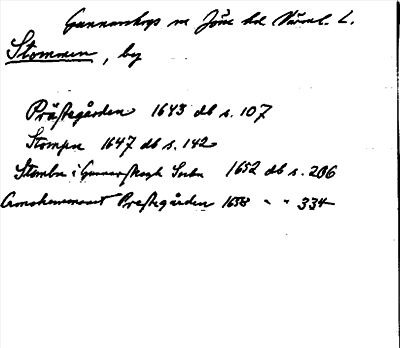 Gunnarskogs sn Jösse hd Värml. L.
Stommen, by
Prästegården 1643 db s. 107
Stompn 1647 db s. 142
Stomben i Gunnerskogh Sochn 1652 db s. 206
Annehemmanet Prestegården 1658 " " 334